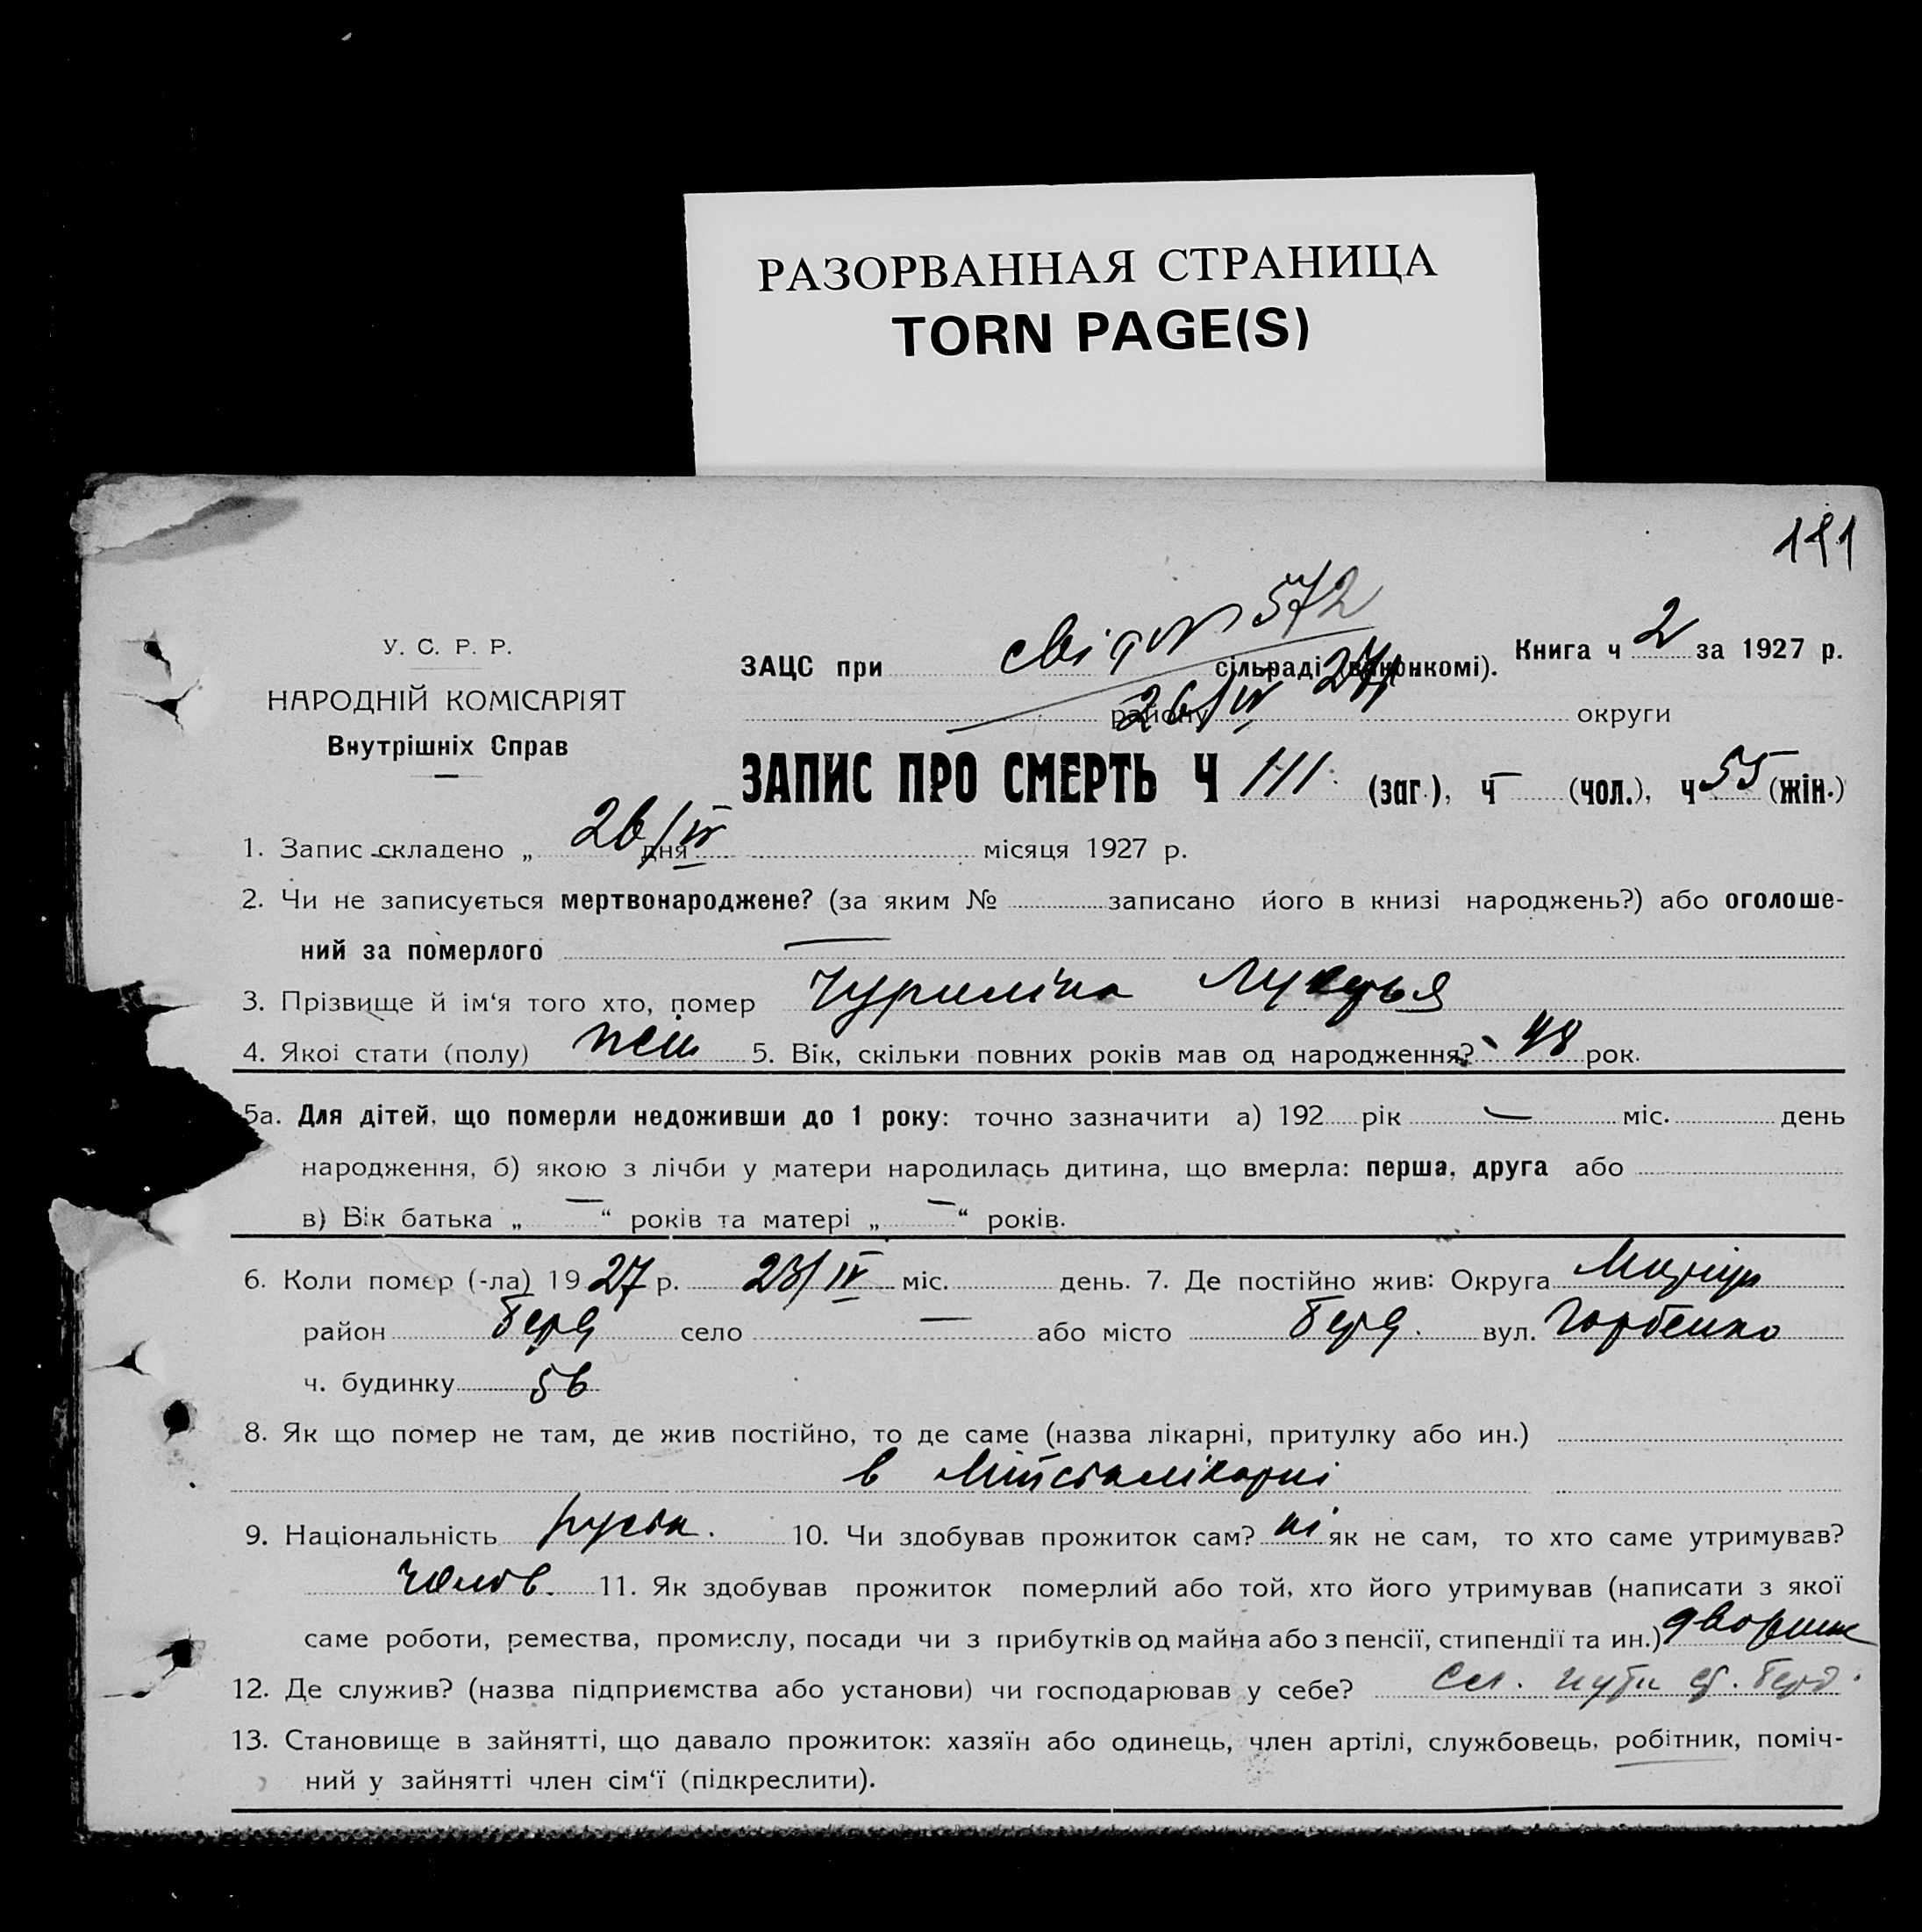 РАЗОРВАННАЯ СТРАНИЦА
TORN PAGE(S)
У. С. Р. Р.
НАРОДНІЙ КОМІСАРІЯТ
Внутрішніх Справ
572
ЗАЦС при сільраді (виконкомі).
Книга ч 2 за 1927 р.
26/IV 27 р району округи
ЗАПИС ПРО СМЕРТЬ Ч 111. (заг.), ч — (чол.), ч 55 (жін.)
1. Запис складено „ 26/IV дня місяця 1927 р.
2. Чи не записується мертвонароджене? (за яким № записано його в книзі народжень?) або оголоше-
ний за померлого —
3. Прізвище й ім‘я того хто, помер Чуриліна Лукерья
4. Якої стати (полу) жін. 5. Вік, скільки повних років мав од народження? 48 рок.
5а. Для дітей, що померли недоживши до 1 року: точно зазначити а) 192 рік — міс. день
народження, б) якою з лічби у матери народилась дитина, що вмерла: перша, друга або
в) Вік батька „ — “ років та матері „ — “ років.
6. Коли помер (-ла) 19 27 р. 23/IV міс. день. 7. Де постійно жив: Округа
район Берд село — або місто Берд. вул. Горбенко
ч. будинку 56
8. Як що помер не там, де жив постійно, то де саме (назва лікарні, притулку або ин.)
в
9. Національність руська. 10. Чи здобував прожиток сам? ні як не сам, то хто саме утримував?
чолов. 11. Як здобував прожиток померлий або той, хто його утримував (написати з якої
саме роботи, ремества, промислу, посади чи з прибутків од майна або з пенсії, стипендії та ин.) дворник
12. Де служив? (назва підприємства або установи) чи господарював у себе? Сл. пути ст. Берд.
13. Становище в зайнятті, що давало прожиток: хазяїн або одинець, член артілі, службовець, робітник, поміч-
ний у зайнятті член сім‘ї (підкреслити).